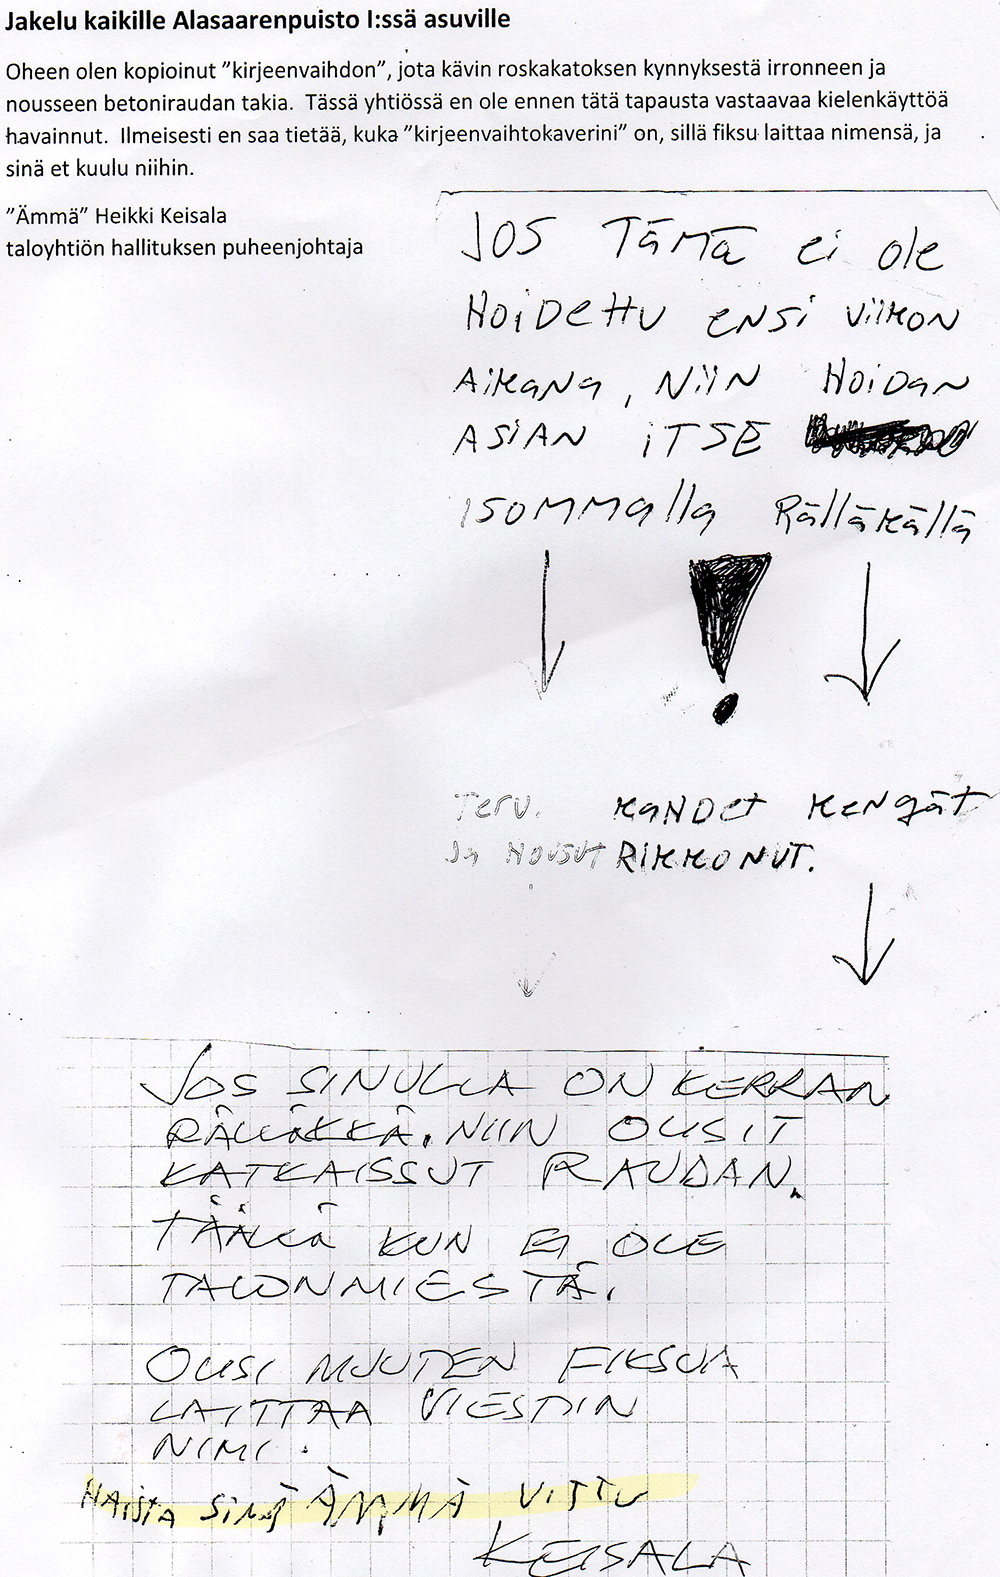 Jakelu kaikille Alasaarenpuisto I:ssä asuville
Oheen olen kopioinut ”kirjeenvaihdon”, jota kävin roskakatoksen kynnyksestä irronneen ja
nousseen betoniraudan takia. Tässä yhtiössä en ole ennen tätä tapausta vastaavaa kielenkäyttöä
havainnut. Ilmeisesti en saa tietää, kuka ”kirjeenvaihtokaverini” on, sillä fiksu laittaa nimensä, ja
sinä et kuulu niihin.
”Ämmä” Heikki Keisala
taloyhtiön hallituksen puheenjohtaja
JOS TÄMÄ ei ole
HOIDETTU ENSI VIIKON
AIKANA, NIIN HOIDAN
ASIAN ITSE
ISOMMALLA RÄLLÄKÄLLÄ
!
TERV. KAHDET KENGÄT
JA HOUSUT RIKKONUT.
JOS SINULLA ON KERRAN
RÄLLÄKKÄ, NIIN OLISIT
KATKAISSUT RAUDAN.
TÄÄLLÄ KUN EI OLE
TALONMIESTÄ.
OLISI MUUTEN FIKSUA
LAITTAA VIESTIIN
NIMI.
HAISTA SINÄ ÄMMÄ VITTU
KEISALA